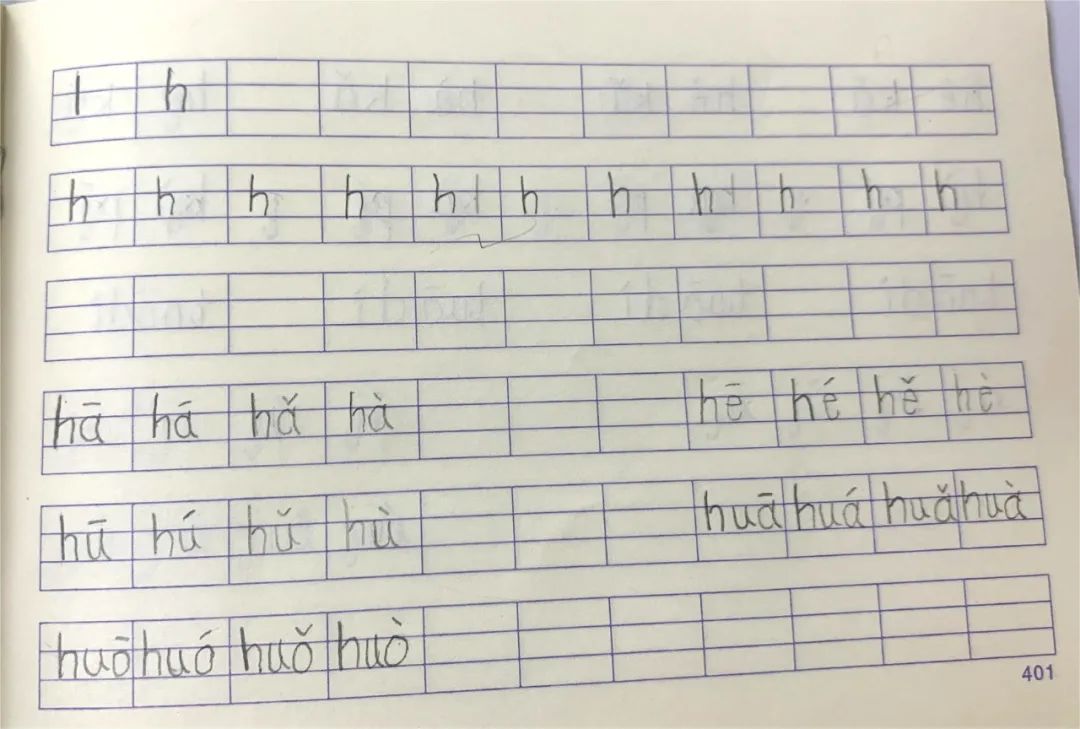 l h
h h h h h h h h h h h
hā há hǎ hà hē hé hě hè
hū hú hǔ hù huā huá huǎ huà
huō huó huǒ huò
401